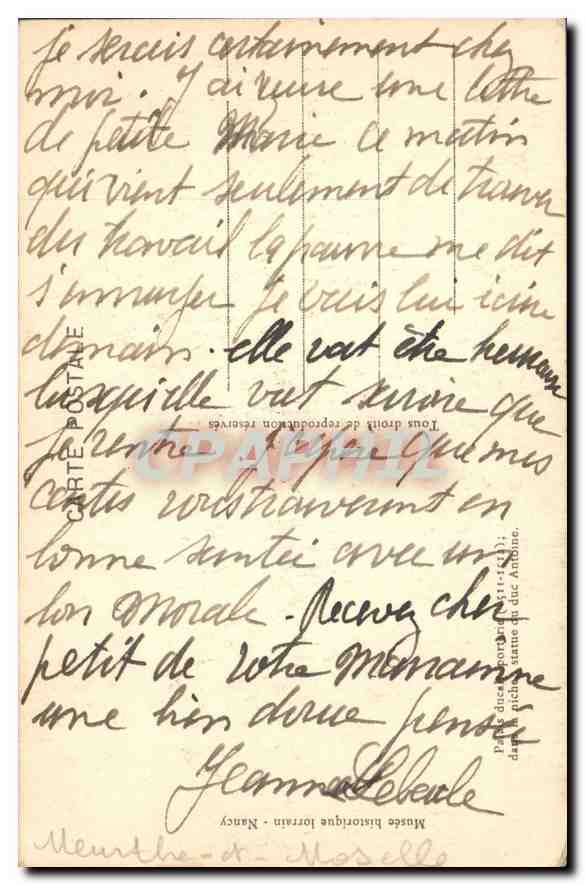 je serais certainement chez
moi. J'ai reçue une lettre
de petite Marie ce matin
qui vient seulement de trouver
du travail la pauvre me dit
s'ennuyer je vais lui écrire
demain. elle vat être heureuse
lasquelle vat savoire que
je rentre j'espère que mes
cartes vous trouveront en
bonne santée avec un
bon Morale. Recevez cher
petit de votre Manamme
une bien douce pensée
Jeanne
Meurthe-et-Moselle
CARTE POSTALE
Tous droits de reproduction réservés
CPAPHIL
Palais ducal, porterie (1511-1512);
dans la niche, statue du duc Antoine.
Musée historique lorrain - Nancy